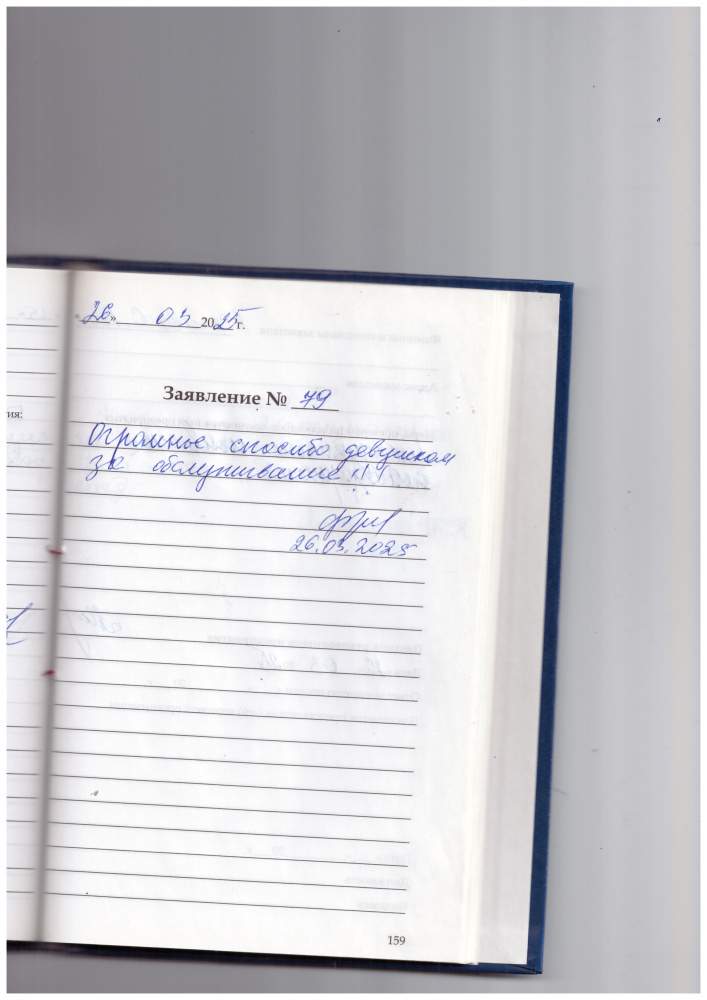 26» 03 2025г.
Заявление № 79
тия:
Огромное спосибо девушком
за обслуживание!!!
26.03.2025
159